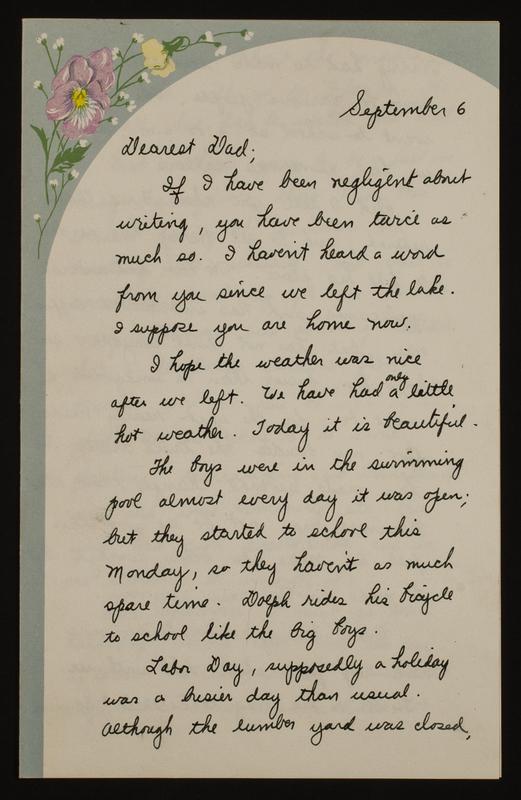 September 6
Dearest Dad;
If I have been negligent about
writing, you have been twice as
much so. I haven't heard a word
from you since we left the lake.
I suppose you are home now.
I hope the weather was nice
after we left. We have had only a little
hot weather. Today it is beautiful.
The boys were in the swimming
pool almost every day it was open;
but they started to school this
Monday, so they haven't as much
spare time. Dolph rides his bicycle
to school like the big boys.
Labor Day, supposedly a holiday
was a busier day than usual.
Although the lumber yard was closed,